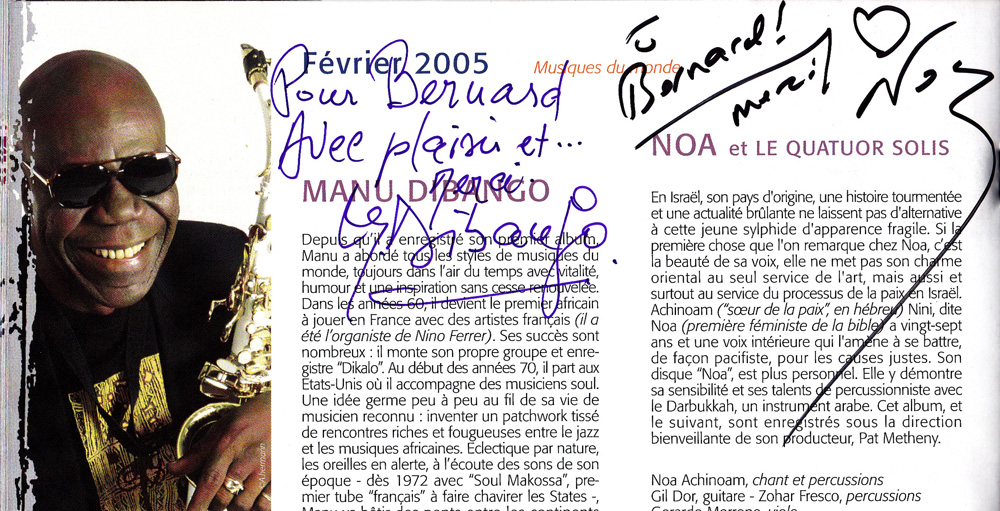 Février 2005
Musiques du monde
Pour Bernard
Avec plaisir et...
merci.
MANU DIBANGO
M Dibango
Depuis qu'il a enregistré son premier album,
Manu a abordé tous les styles de musiques du
monde, toujours dans l'air du temps avec vitalité,
humour et une inspiration sans cesse renouvelée.
Dans les années 60, il devient le premier africain
à jouer en France avec des artistes français (il a
été l'organiste de Nino Ferrer). Ses succès sont
nombreux : il monte son propre groupe et enre-
gistre "Dikalo". Au début des années 70, il part aux
Etats-Unis où il accompagne des musiciens soul.
Une idée germe peu à peu au fil de sa vie de
musicien reconnu : inventer un patchwork tissé
de rencontres riches et fougueuses entre le jazz
et les musiques africaines. Eclectique par nature,
les oreilles en alerte, à l'écoute des sons de son
époque - dès 1972 avec "Soul Makossa", pre-
mier tube "français" à faire chavirer les States -,
Manu va bâtir des ponts entre les continents
To
Bernard!
merci!
Noa
NOA et LE QUATUOR SOLIS
En Israël, son pays d'origine, une histoire tourmentée
et une actualité brûlante ne laissent pas d'alternative
à cette jeune sylphide d'apparence fragile. Si la
première chose que l'on remarque chez Noa, c'est
la beauté de sa voix, elle ne met pas son charme
oriental au seul service de l'art, mais aussi et
surtout au service du processus de la paix en Israël.
Achinoam ("sœur de la paix", en hébreu) Nini, dite
Noa (première féministe de la bible) a vingt-sept
ans et une voix intérieure qui l'amène à se battre,
de façon pacifiste, pour les causes justes. Son
disque "Noa", est plus personnel. Elle y démontre
sa sensibilité et ses talents de percussionniste avec
le Darbukkah, un instrument arabe. Cet album, et
le suivant, sont enregistrés sous la direction
bienveillante de son producteur, Pat Metheny.
Noa Achinoam, chant et percussions
Gil Dor, guitare - Zohar Fresco, percussions